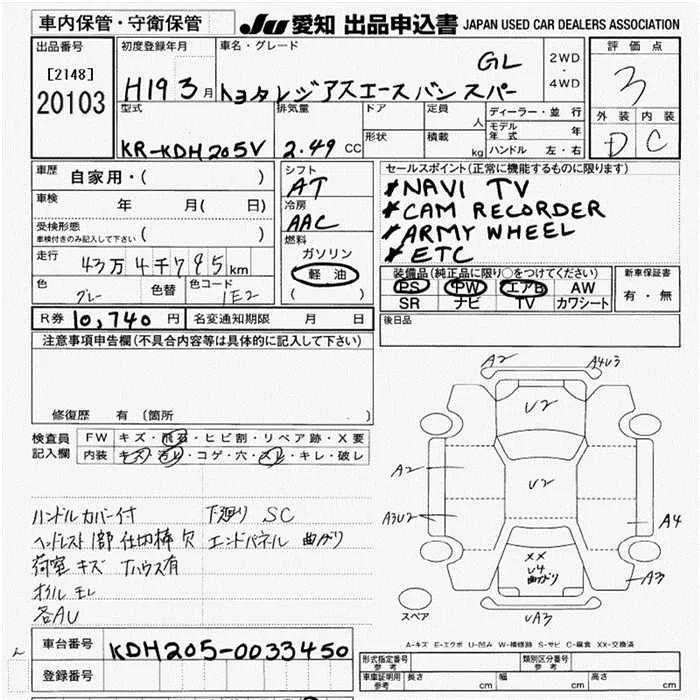 車内保管・守衛保管 JU 愛知 出品申込書 JAPAN USED CAR DEALERS ASSOCIATION
出品番号 初度登録年月 車名・グレード GL 2WD・4WD 評価点
[2148] H19 3月 トヨタレジアスエースバン スパー 3
20103 型式 排気量 ドア 定員 人 ディーラー・並行 外装 内装
形状 積載 kg モデル年式 年 D C
KR-KDH205V 2.49 CC ハンドル 左・右
車歴 自家用・( ) シフト AT セールスポイント(正常に機能するものに限ります)
車検 年 月( 日) 冷房 AAC *NAVI TV
受検形態 車検付きのみ記入して下さい ( ) 燃料 *CAM RECORDER
走行 43万4千795km ガソリン *ARMY WHEEL
軽油 *ETC
色 グレー 色替 色コード 1E2 ( ) 装備品(純正品に限り○をつけてください) 新車保証書
PS PW エアB AW 有・無
SR ナビ TV カワシート
R券 10,740円 名変通知期限 月 日 後日品
注意事項申告欄(不具合内容等は具体的に記入して下さい)
修復歴 有 (箇所 )
A2 A4U3
U2
検査員 FW キズ・飛石・ヒビ割・リペア跡・X要
記入欄 内装 キズ・汚レ・コゲ・穴・スレ・キレ・破レ
A2 U2
ハンドルカバー付 下廻り SC A3U2 A4
ヘッドレスト1部 仕切棒 欠 エンドパネル 曲がり
荷室キズ Tハウス有 XX U4 曲がり A3
オイルモレ
各AU スペア UA3
A-キズ E-エクボ U-凹み W-補修跡 S-サビ C-腐食 XX-交換済
車台番号 KDH205-0033450
形式指定番号 参考 類別区分番号 参考
登録番号 車庫証明用 参考 長さ cm 幅 cm 高さ cm